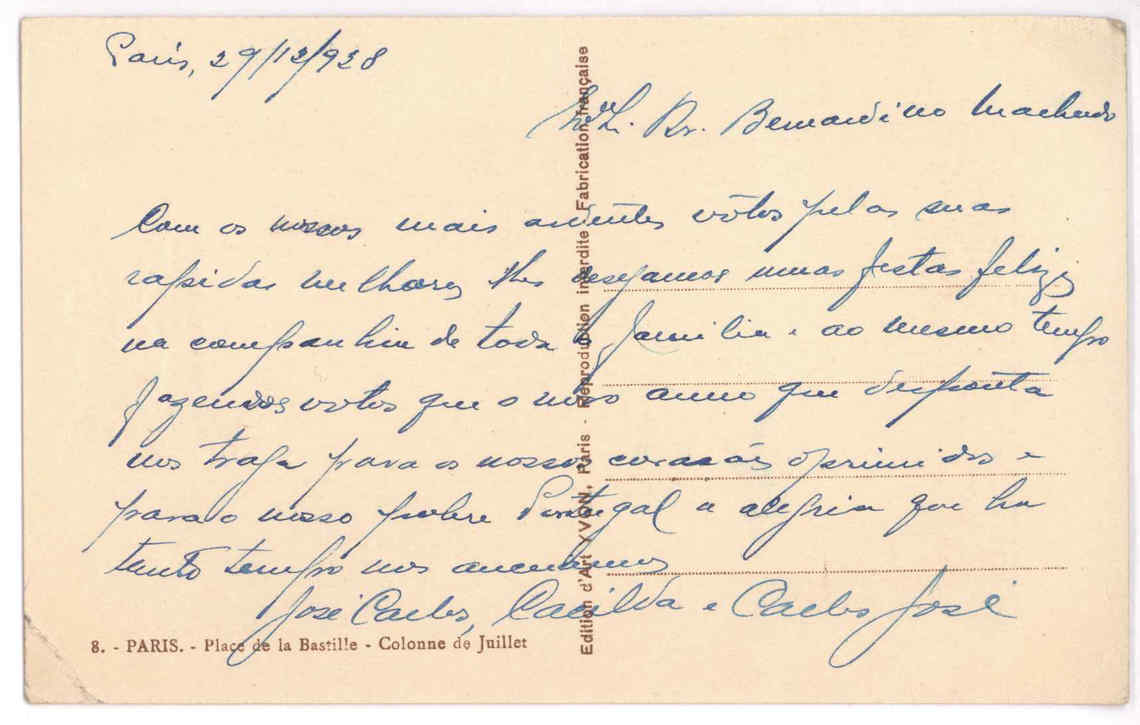 Paris, 29/12/928
Dr. Bernardino Machado
Com os nossos mais ardentes vótos pelas suas
rapidas melhoras, lhes desejamos umas festas felizes
na companhia de toda a familia e ao mesmo tempo
fazendo votos que o novo anno que desponta
nos traga para os nossos corações oprimidos e
para o nosso pobre Portugal a alegria que ha
tanto tempo nos
José Carlos, Cacilda e Carlos José
8. - PARIS. - Place de la Bastille - Colonne de Juillet
Edition d'Art YVON, Paris - Reproduction interdite - Fabrication française